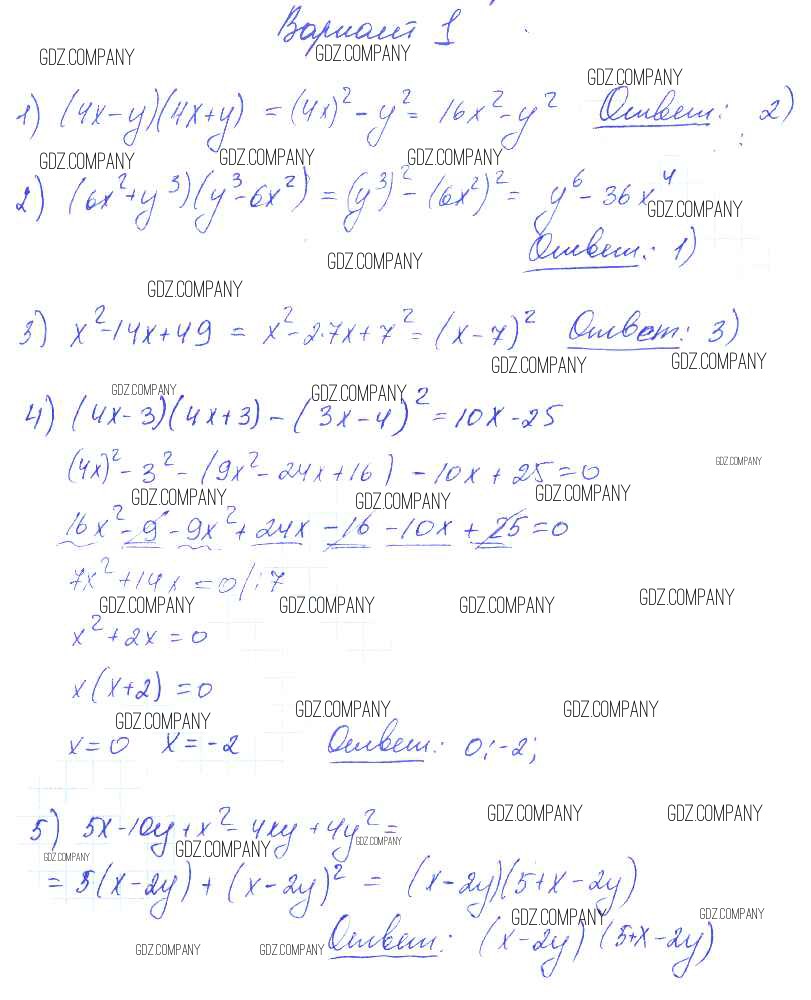 Вариант 1
GDZ.COMPANY GDZ.COMPANY GDZ.COMPANY
1) (4x-y)(4x+y) = (4x)²-y² = 16x²-y² Ответ: 2)
GDZ.COMPANY GDZ.COMPANY GDZ.COMPANY
2) (6x²+y³)(y³-6x²) = (y³)²-(6x²)² = y⁶-36x⁴
GDZ.COMPANY
Ответ: 1)
GDZ.COMPANY
GDZ.COMPANY
3) x²-14x+49 = x²-2·7x+7² = (x-7)² Ответ: 3)
GDZ.COMPANY GDZ.COMPANY
GDZ.COMPANY GDZ.COMPANY
4) (4x-3)(4x+3)-(3x-4)²=10x-25
(4x)²-3²-(9x²-24x+16)-10x+25=0
GDZ.COMPANY
GDZ.COMPANY GDZ.COMPANY GDZ.COMPANY
16x²-9-9x²+24x-16-10x+25=0
7x²+14x=0/:7
GDZ.COMPANY GDZ.COMPANY GDZ.COMPANY GDZ.COMPANY
x²+2x=0
x(x+2)=0
GDZ.COMPANY GDZ.COMPANY GDZ.COMPANY
x=0 x=-2 Ответ: 0;-2;
GDZ.COMPANY GDZ.COMPANY
5) 5x-10y+x²-4xy+4y²=
GDZ.COMPANY GDZ.COMPANY GDZ.COMPANY
=5(x-2y)+(x-2y)² = (x-2y)(5+x-2y)
GDZ.COMPANY GDZ.COMPANY
Ответ: (x-2y)(5+x-2y)
GDZ.COMPANY GDZ.COMPANY